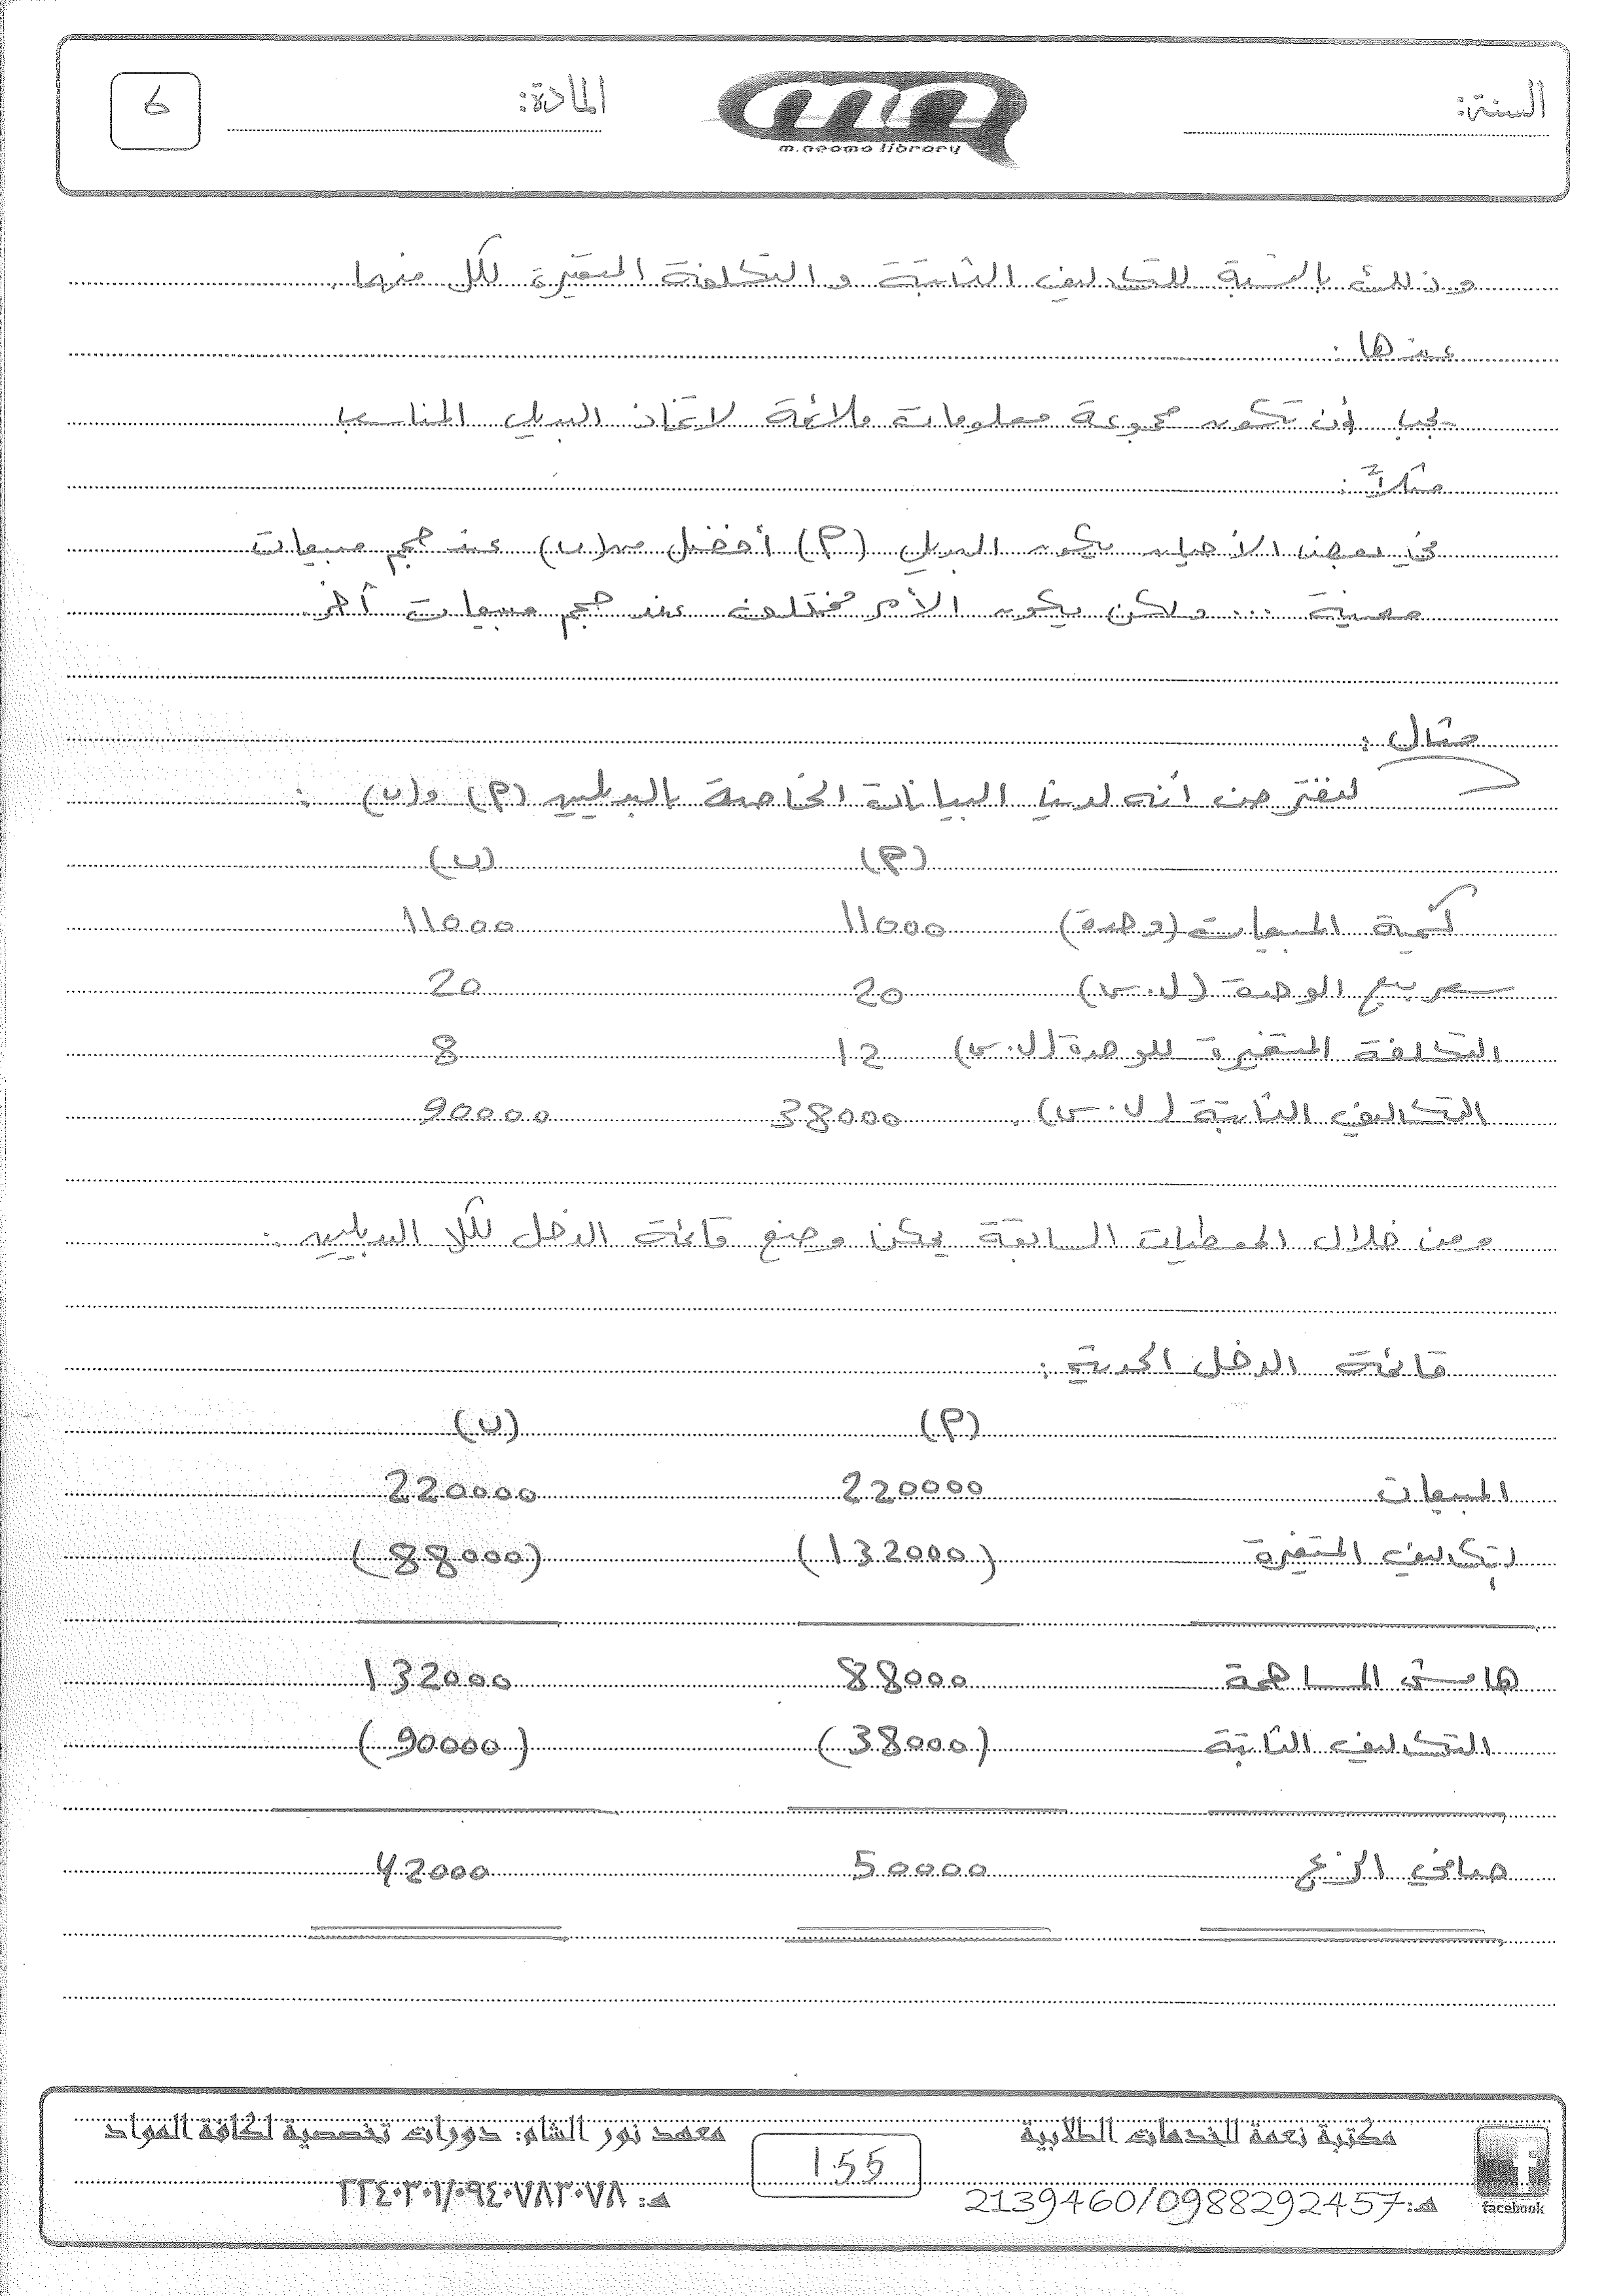 السنة:
m.neama library
المادة:
6
وذلك بالنسبة للتكاليف الثابتة والتكلفة المتغيرة لكل منهما.
عندها:
يجب أن تكون مجموعة معلومات ملائمة لاتخاذ البديل المناسب
مثلاً:
في بعض الأحيان يكون البديل (م) أفضل من (ب) عند حجم مبيعات
معينة ... ولكن يكون الأمر مختلف عند حجم مبيعات أخر.
مثال:
لنفترض أنه لدينا البيانات الخاصة بالبديلين (م) و(ب):
(م) (ب)
كمية المبيعات (وحدة) 11000 11000
سعر بيع الوحدة (ل.س) 20 20
التكلفة المتغيرة للوحدة (ل.س) 12 8
التكاليف الثابتة (ل.س). 38000 90000
ومن خلال المعطيات السابقة يمكن وضع قائمة الدخل لكلا البديلين:
قائمة الدخل الحدية:
(م) (ب)
المبيعات 220000 220000
التكاليف المتغيرة (132000) (88000)
هامش المساهمة 88000 132000
التكاليف الثابتة (38000) (90000)
صافي الربح 50000 42000
مكتبة نعمة للخدمات الطلابية
هـ: 2139460/0988292457
facebook
155
معهد نور الشام: دورات تخصصية لكافة المواد
هـ: ٢٢٤٠٣٠١/٠٩٤٠٧٨٣٠٧٨